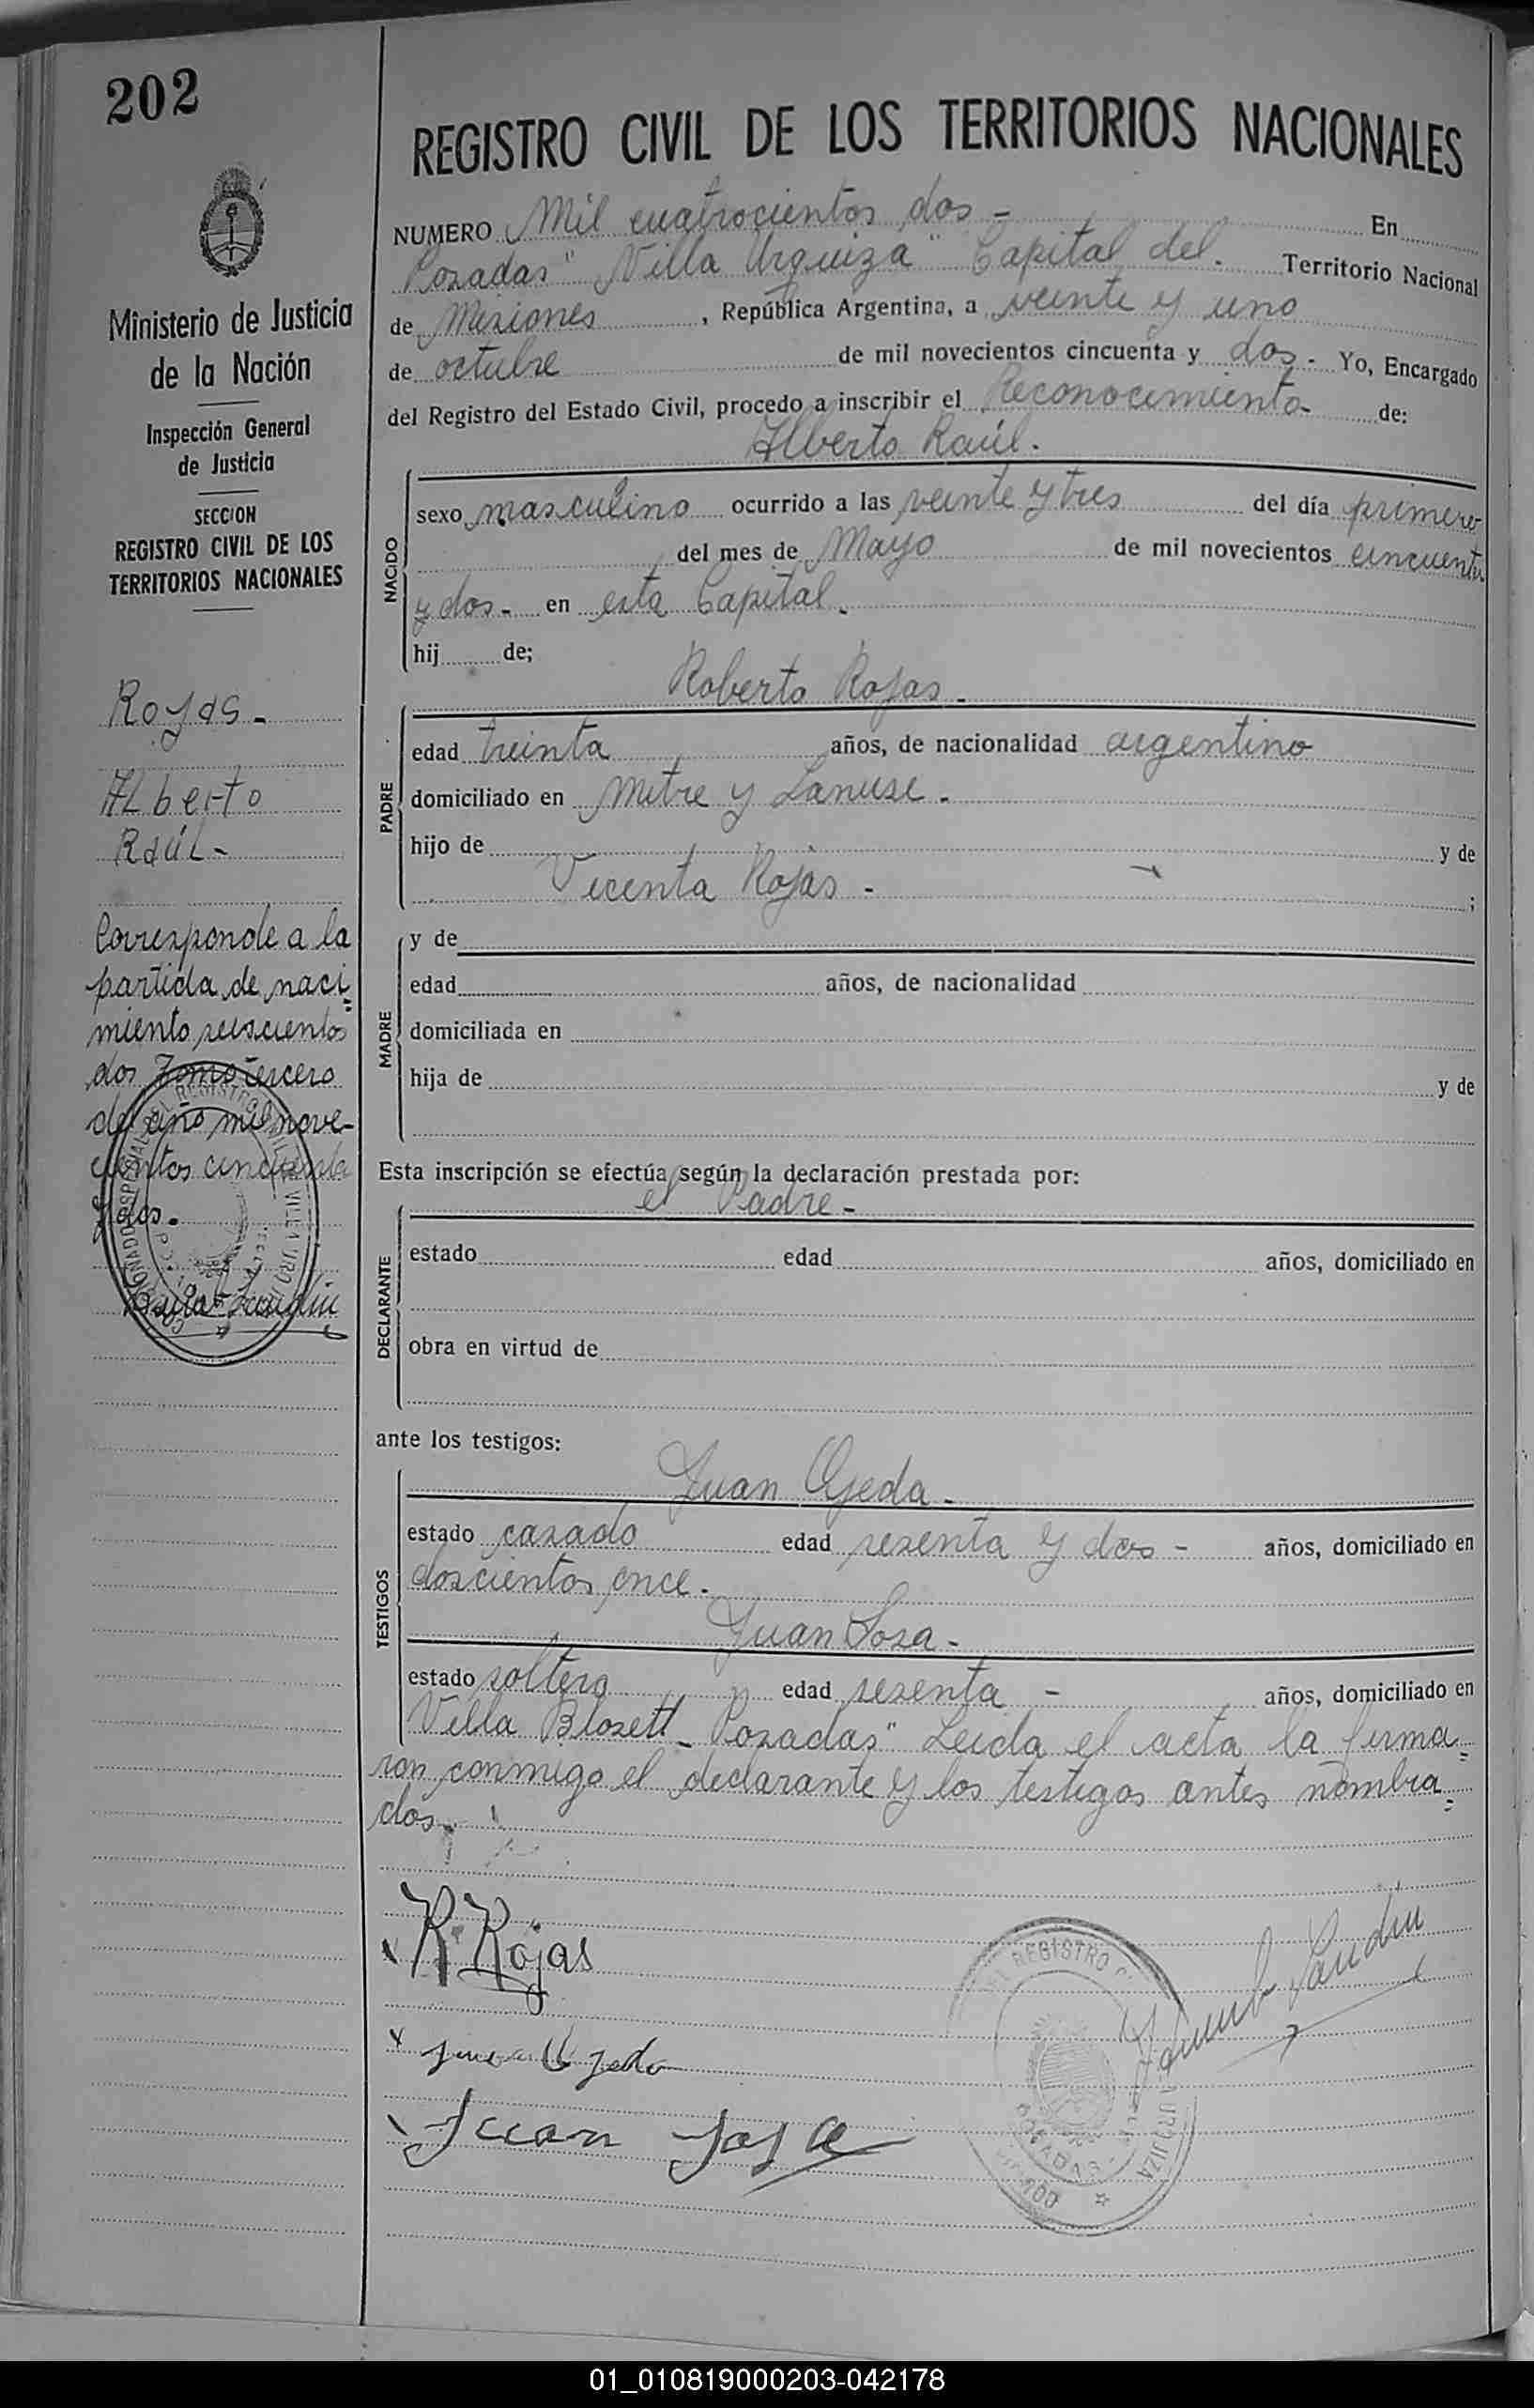 202
REGISTRO CIVIL DE LOS TERRITORIOS NACIONALES
NUMERO Mil cuatrocientos dos - En
Posadas "Villa Urquiza" Capital del. Territorio Nacional
de Misiones, República Argentina, a veinte y uno
de octubre de mil novecientos cincuenta y dos - Yo, Encargado
del Registro del Estado Civil, procedo a inscribir el Reconocimiento - de:
Alberto Raúl.
NACIDO
sexo masculino ocurrido a las veinte y tres del día primero
del mes de Mayo de mil novecientos cincuenta
y dos - en esta Capital.
hij de;
Roberto Rojas -
PADRE
edad treinta años, de nacionalidad argentino
domiciliado en Mitre y Lanuse -
hijo de y de
Vicenta Rojas - ;
MADRE
y de
edad años, de nacionalidad
domiciliada en
hija de y de
Esta inscripción se efectúa según la declaración prestada por:
el Padre -
DECLARANTE
estado edad años, domiciliado en
obra en virtud de
ante los testigos:
TESTIGOS
Juan Ojeda -
estado casado edad sesenta y dos - años, domiciliado en
doscientos once.
Juan Sosa -
estado soltero edad sesenta - años, domiciliado en
Villa Blosett - Posadas" Leida el acta la firma=
ron conmigo el declarante y los testigos antes nombra=
dos.
R. Rojas
Juan Ojeda
Juan Sosa
REGISTRO
URQUIZA
POSADAS
Ministerio de Justicia
de la Nación
Inspección General
de Justicia
SECCION
REGISTRO CIVIL DE LOS
TERRITORIOS NACIONALES
Rojas -
Alberto
Raúl -
Corresponde a la
partida de naci=
miento seiscientos
dos Tomo tercero
del año mil nove-
cientos cincuenta
y dos.
01_010819000203-042178